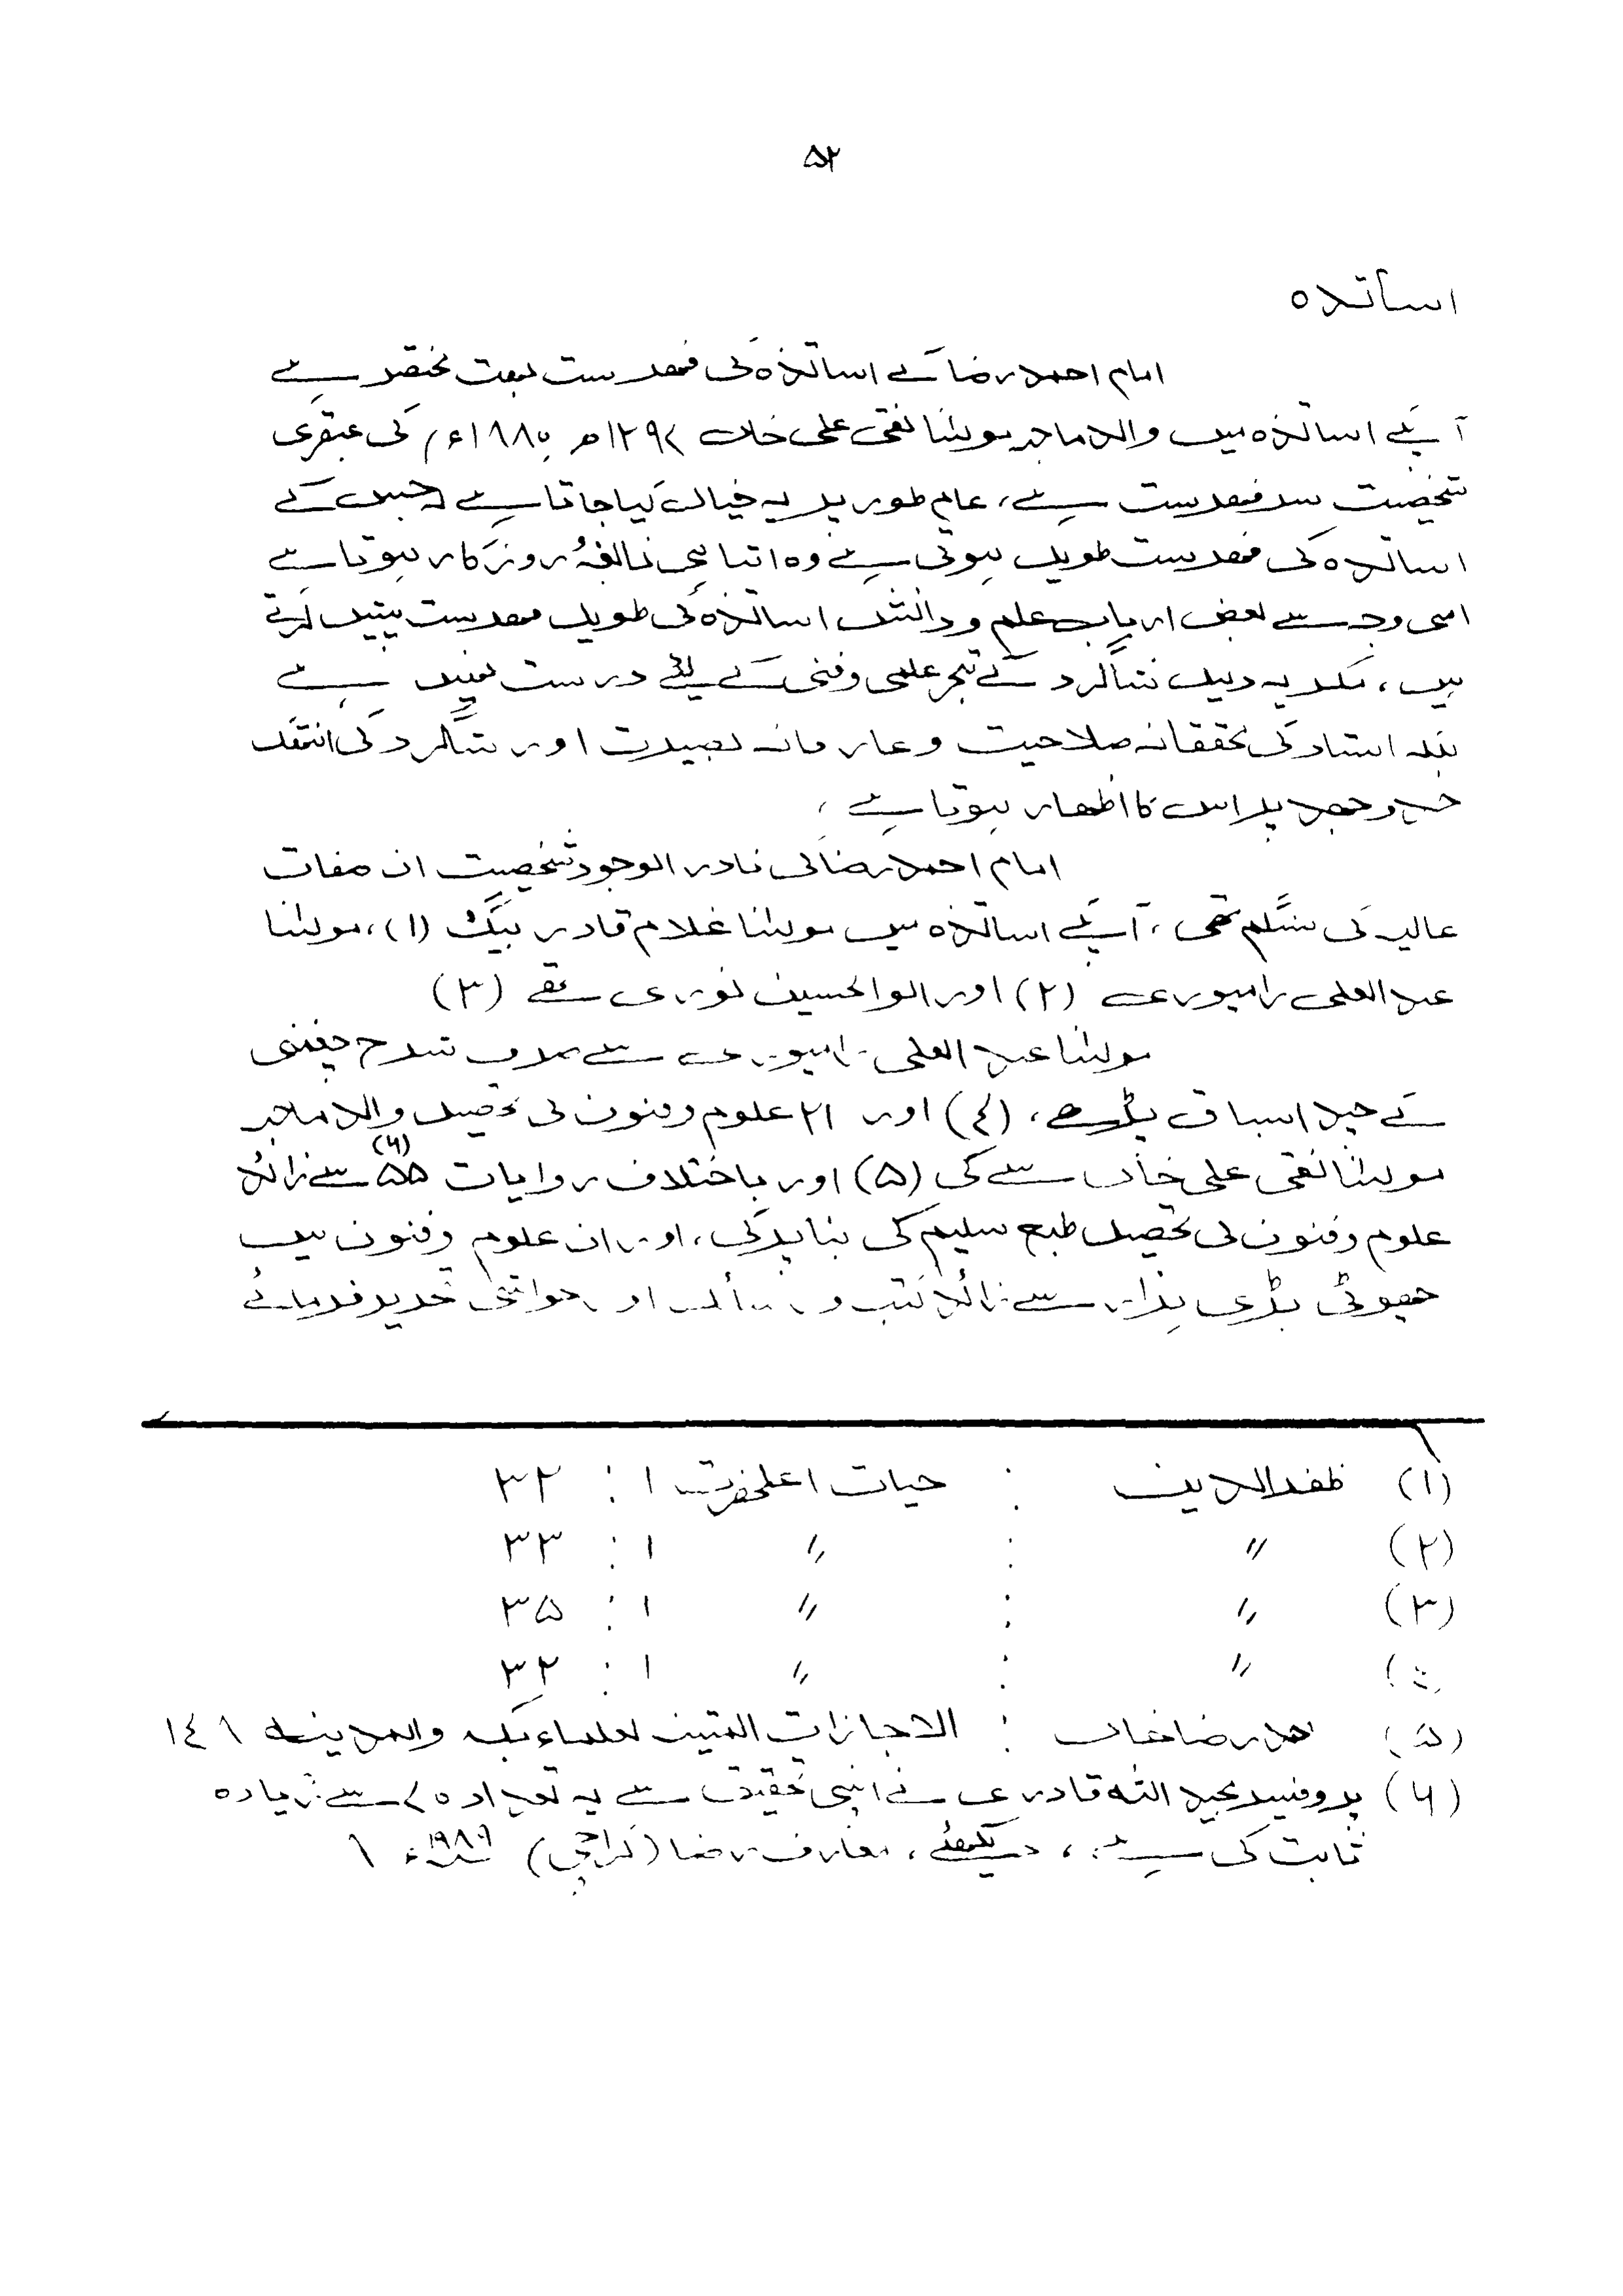 ۵۲
اساتذہ
امام احمد رضا کے اساتذہ کی فہرست بہت مختصر ہے
آپکے اساتذہ میں والد ماجد مولٰنا نقی علی خاں ۱۲۹۷ھ ۱۸۸۰ء کی عبقری
شخصیت سر فہرست ہے، عام طور پر یہ خیال کیا جاتا ہے کہ جس کے
اساتذہ کی فہرست طویل ہوتی ہے وہ اتنا ہی نابغۂ روزگار ہوتا ہے
اسی وجہ سے بعض ارباب علم و دانش اساتذہ کی طویل فہرست پیش کرتے
ہیں، مگر یہ دلیل شاگرد کے تبحر علمی و فنی کے لئے درست نہیں ہے
بلکہ استاد کی محققانہ صلاحیت و عارفانہ بصیرت اور شاگرد کی انتھک
جد و جہد پر اس کا اظہار ہوتا ہے ،
امام احمد رضا کی نادر الوجود شخصیت ان صفات
عالیہ کی سنگم تھی ، آپکے اساتذہ میں مولٰنا غلام قادر بیگ (۱)، مولٰنا
عبد العلی رامپوری (۲) اور ابوالحسین نوری تھے (۳)
مولٰنا عبد العلی رامپوری سے صرف شرح چغمنی
کے چند اسباق پڑھے، (۴) اور ۲۱ علوم و فنون کی تحصیل والد ماجد
مولٰنا نقی علی خاں سے کی (۵) اور باختلاف روایات ۵۵ (۶) سے زائد
علوم و فنون کی تحصیل طبع سلیم کی بنا پر کی، اور ان علوم و فنون میں
چھوٹی بڑی ہزار سے زائد کتب و رسائل اور حواشی تحریر فرمائے
(۱) ظفر الدین : حیات اعلیٰحضرت ۱ : ۳۲
(۲) 〃 : 〃 ۱ : ۳۳
(۳) 〃 : 〃 ۱ : ۳۵
(۴) 〃 : 〃 ۱ : ۳۲
(۵) احمد رضا خاں : الاجازات المتینہ لعلماء بکہ والمدینہ
(۶) پروفیسر مجید اللہ قادری نے اپنی تحقیق سے یہ تعداد ۷۰ سے زیادہ
ثابت کی ہے ، دیکھئے ، معارف رضا (کراچی) ۱۹۸۹ء